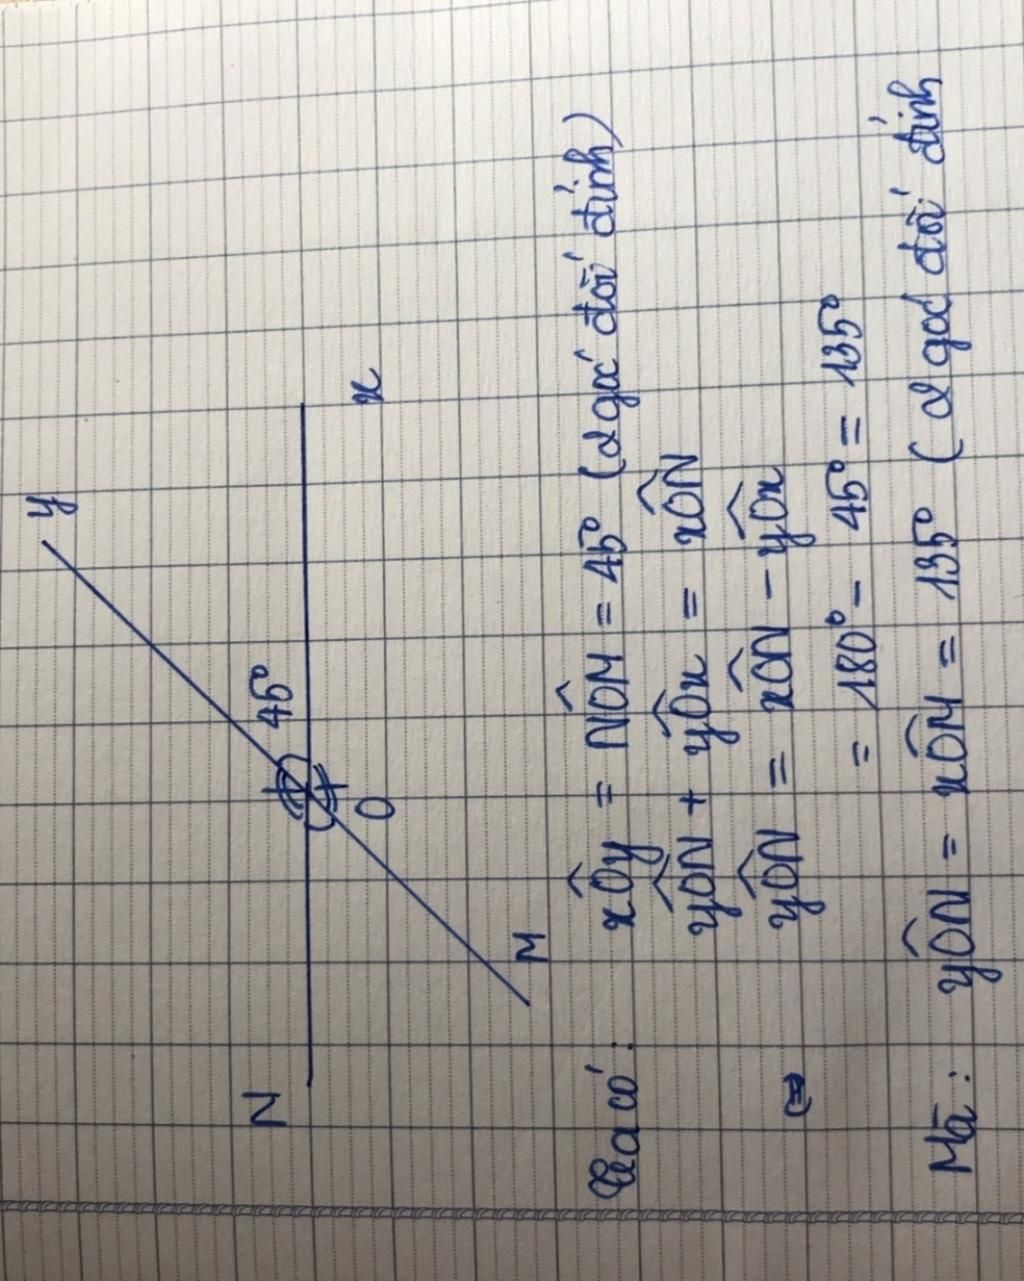 y
45°
N
x
O
M
Ta có: xÔy = NÔM = 45° (2 góc đối đỉnh)
yÔN + yÔx = xÔN
⇔ yÔN = xÔN - yÔx
= 180° - 45° = 135°
Mà: yÔN = xÔM = 135° (2 góc đối đỉnh